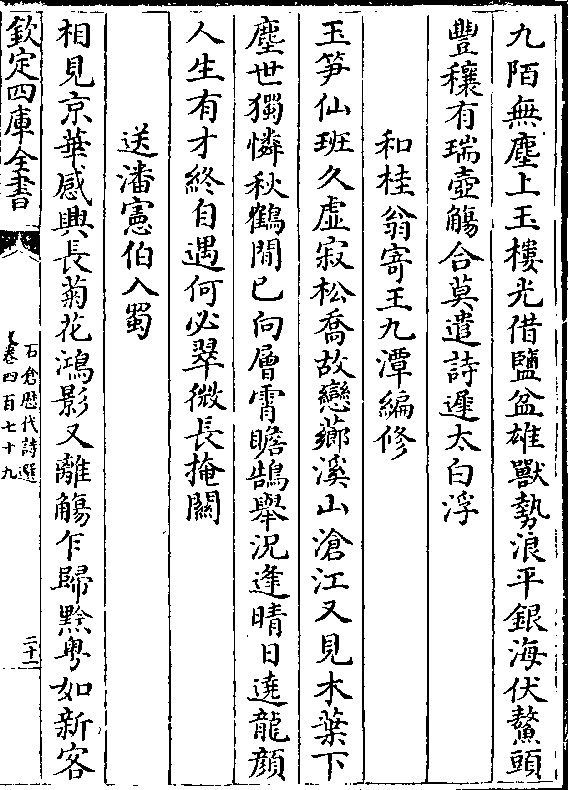 九陌無塵上玉樓光借鹽盆雄獸勢浪平銀海伏鰲頭
豐穰有瑞壺觴合莫遣詩遲太白浮
和桂翁寄王九潭編修
玉笋仙班久虛寂松喬故戀薌溪山滄江又見木葉下
塵世獨憐秋鶴閒已向層霄瞻鵠舉況逢晴日遶龍顔
人生有才終自遇何必翠微長掩關
送潘憲伯入蜀
相見京華感興長菊花鴻影又離觴乍歸黔粤如新客
欽定四庫全書
石倉歷代詩選
卷四百七十九
二十二